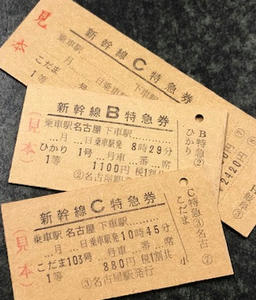 見本
新幹線C特急券
乗車駅
こだま
1等
新幹線B特急券
乗車駅名古屋 下車駅
月 日乗車駅発 8時29分
ひかり 1号 月車 番 席
1等 1100円 税1割共
③名古屋駅発行
(見本)
B特急②
ひかり
2420円
新幹線C特急券
乗車駅名古屋 下車駅
月 日乗車駅発10時45分
こだま103号 月車 番 席
1等 880円 税1割共
③名古屋駅発行
(見本)
C特急④名古
こだま
小